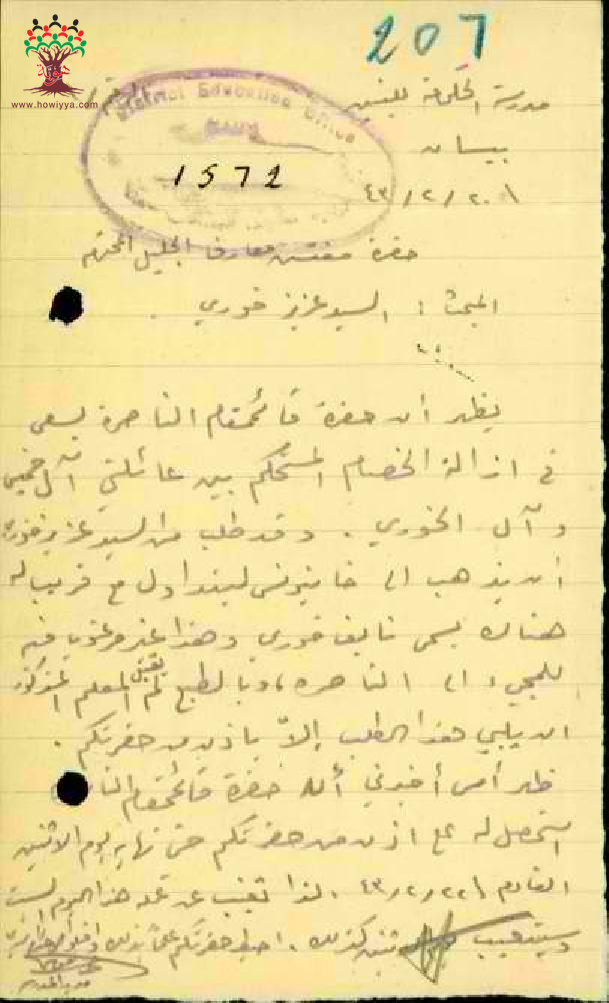 207
www.howiyya.com
District Education Office
1572
مدرسة الحكومة للبنين
بيسان
٢٠/٢/٤٣
حضرة مفتش معارف الجليل المحترم
المبحث : السيد عزيز خوري .
يظهر ان حضرة قائمقام الناصرة يسعى
في ازالة الخصام المستحكم بين عائلتي آل
وآل الخوري . وقد طلب من السيد عزيز خوري
ان يذهب الى خانيونس ليتداول مع قريب له
هناك يسمى نايف خوري وهذا غير مرغوب فيه
للمجيء الى الناصره ، وبالطبع لم يقبل المعلم المذكور
ان يلبي هذا الطلب إلاّ باذن من حضرتكم .
ظهر أمس أخبرني أن حضرة قائمقام
استحصل له على اذن من حضرتكم حتى نهاية يوم الاثنين
القادم ٢٢/٢/٤٣ . لذا تغيب عن عمله هذا اليوم السبت
وسيتغيب كذلك . احيط حضرتكم علماً بذلك
مدير المدرسة